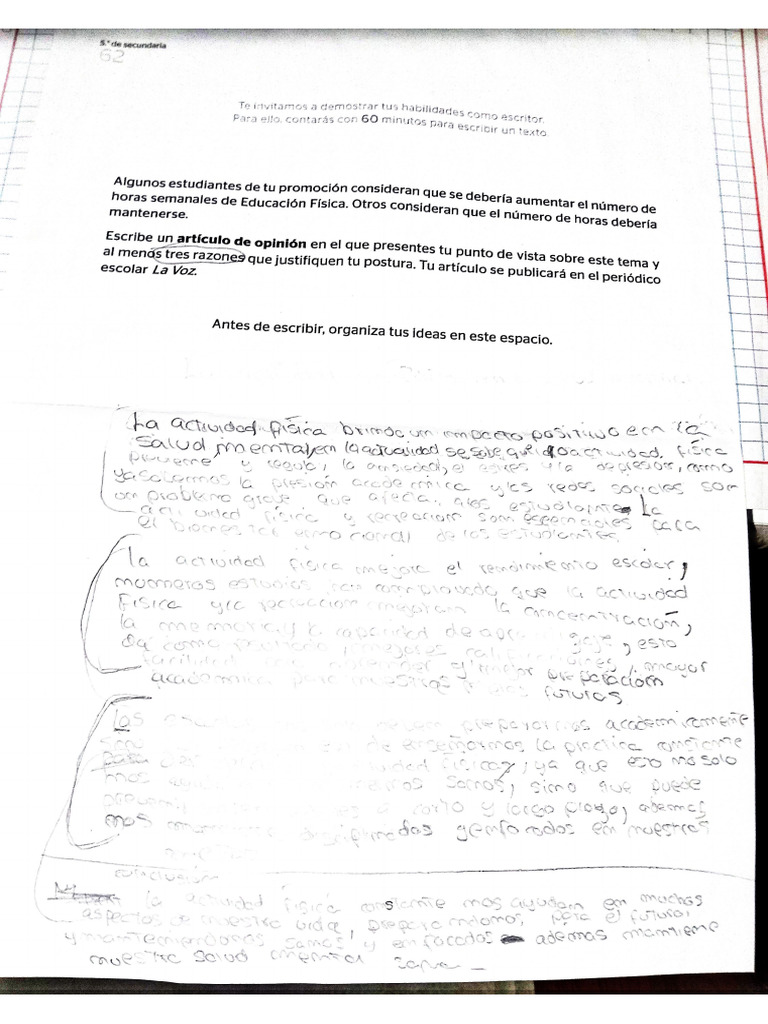 5.° de secundaria
62
Te invitamos a demostrar tus habilidades como escritor.
Para ello, contarás con 60 minutos para escribir un texto.
Algunos estudiantes de tu promoción consideran que se debería aumentar el número de
horas semanales de Educación Física. Otros consideran que el número de horas debería
mantenerse.
Escribe un artículo de opinión en el que presentes tu punto de vista sobre este tema y
al menos tres razones que justifiquen tu postura. Tu artículo se publicará en el periódico
escolar La Voz.
Antes de escribir, organiza tus ideas en este espacio.
La actividad física brinda un impacto positivo en la
salud mental, en la actualidad se sabe que actividad física
previene y regula la ansiedad, el estres y la depresion, como
ya sabemos la presión academica y las redes sociales son
un problema grave que afecta a los estudiantes La
actividad física y recreacion son esenciales para
el bienestar emocional de los estudiantes.
la actividad física mejora el rendimiento escolar,
numeros estudios han comprobado que la actividad
Física y la recreacion mejoran la concentración,
la memoria y la capacidad de aprendizaje, esto
da como resultado mejores calificaciones, mayor
facilidad para aprender y mejor preparación
académica para nuestras futuros
Las no deben prepararnos academicamente
sino de enseñarnos la practica constante
actividad física, ya que esto no solo
nos sanos, sino que puede
prevenir a corto y largo plazo, ademas
nos disciplinados y enfocados en nuestras
conclusión
la actividad física constante nos ayudan en muchos
aspectos de nuestra vida, preparandonos para el futuro,
y manteniendonos sanos y enfocados ademas mantiene
nuestra salud mental sana